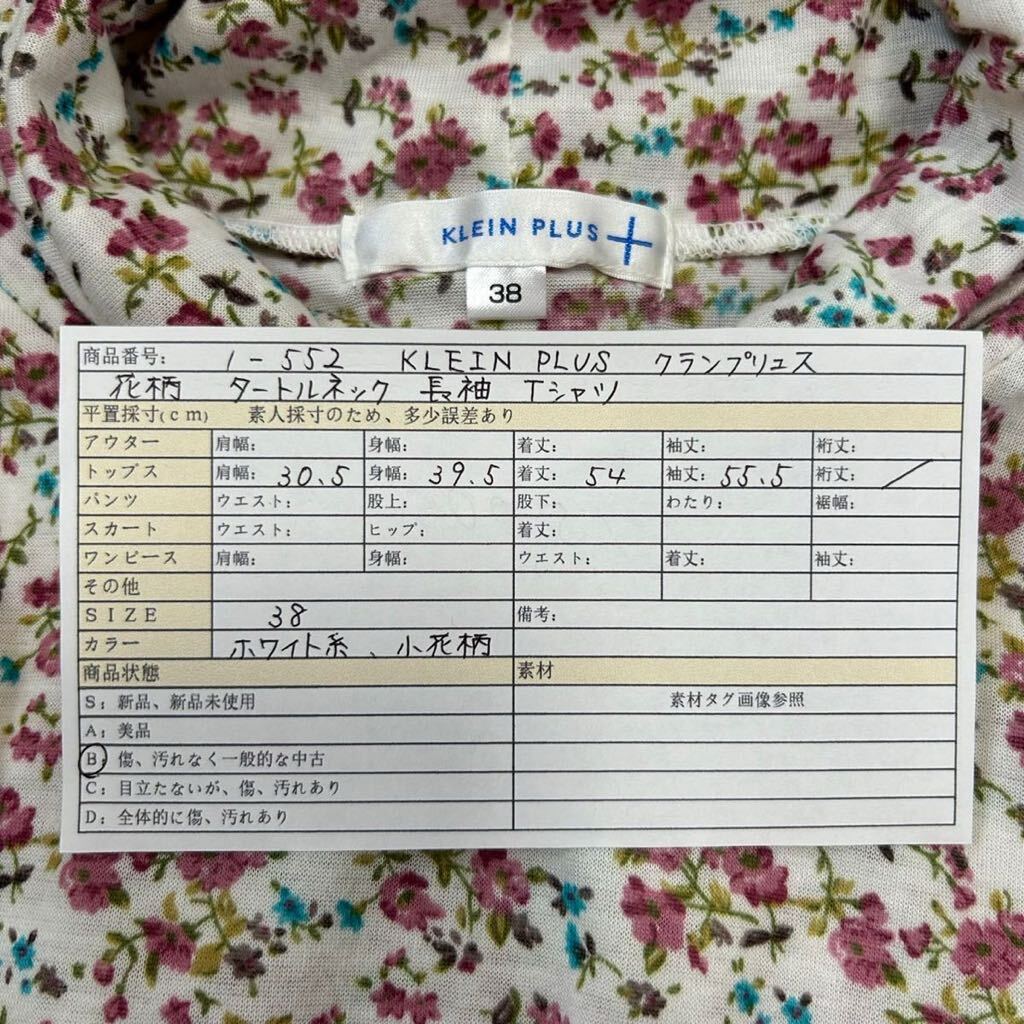 KLEIN PLUS
38
商品番号: 1-552 KLEIN PLUS クランプリュス
花柄 タートルネック 長袖 Tシャツ
平置採寸(cm) 素人採寸のため、多少誤差あり
アウター 肩幅: 身幅: 着丈: 袖丈: 裄丈:
トップス 肩幅: 30.5 身幅: 39.5 着丈: 54 袖丈: 55.5 裄丈: /
パンツ ウエスト: 股上: 股下: わたり: 裾幅:
スカート ウエスト: ヒップ: 着丈:
ワンピース 肩幅: 身幅: ウエスト: 着丈: 袖丈:
その他
SIZE 38 備考:
カラー ホワイト系、小花柄
商品状態 素材
S: 新品、新品未使用 素材タグ画像参照
A: 美品
B: 傷、汚れなく一般的な中古
C: 目立たないが、傷、汚れあり
D: 全体的に傷、汚れあり